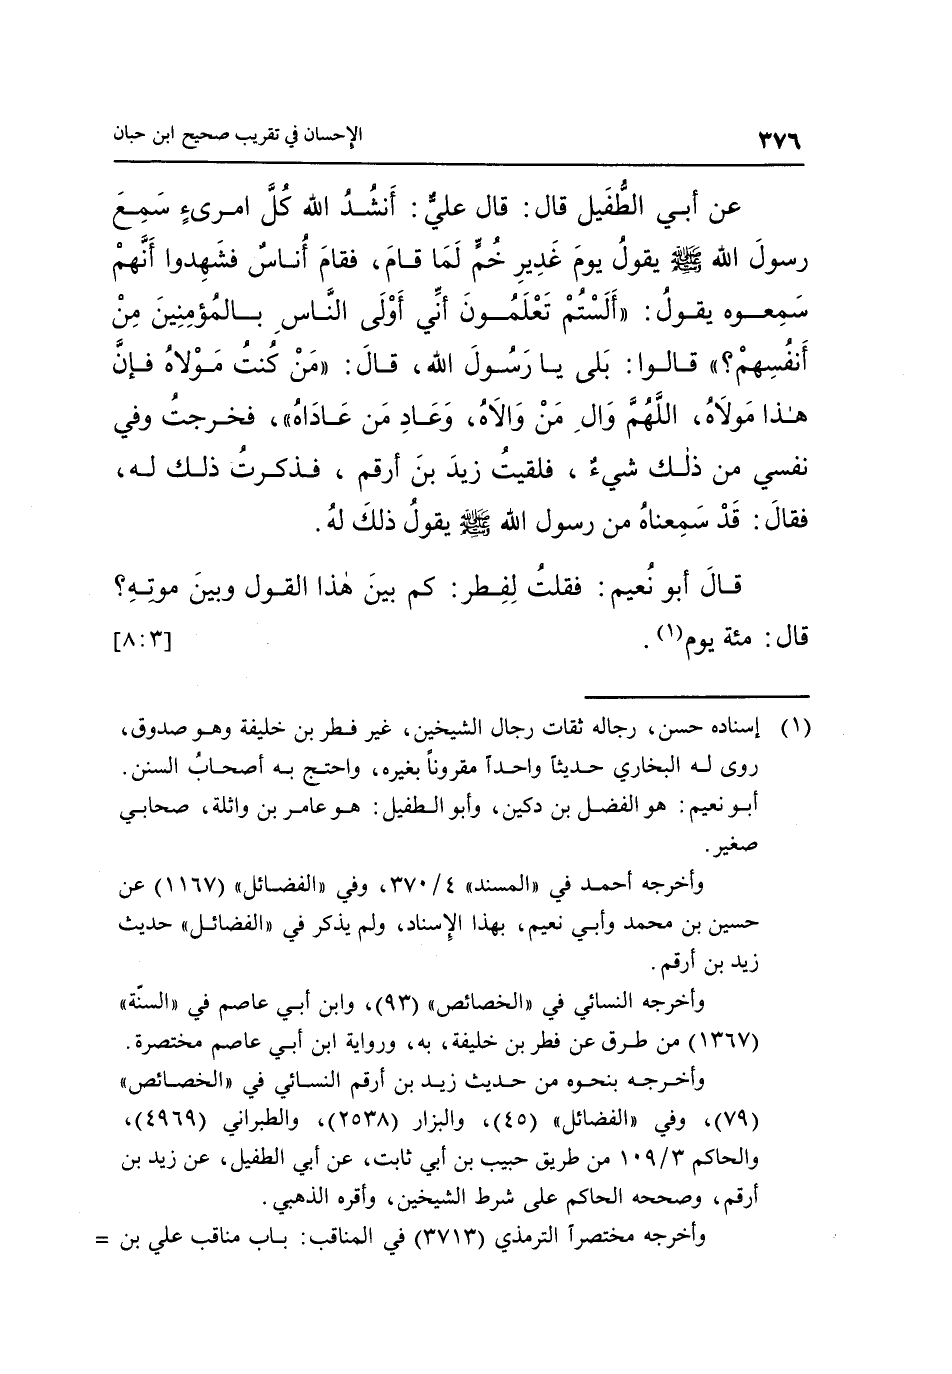 ٣٧٦ الإحسان في تقريب صحيح ابن حبان
عن أبي الطُّفَيل قال: قال عليٌّ: أَنشُدُ الله كُلَّ امرىءٍ سَمِعَ
رسولَ الله ﷺ يقولُ يومَ غَدِيرِ خُمٍّ لَمَا قامَ، فقامَ أُناسٌ فشَهِدوا أَنَّهمْ
سَمِعوه يقولُ: «أَلَسْتُمْ تَعْلَمُونَ أنِّي أَوْلَى النَّاسِ بالمُؤمِنِينَ مِنْ
أَنفُسِهِمْ؟» قالوا: بَلى يا رَسُولَ الله، قالَ: «مَنْ كُنتُ مَوْلاهُ فإنَّ
هٰذا مَولَاهُ، اللَّهُمَّ وَالِ مَنْ وَالَاهُ، وَعَادِ مَن عَادَاهُ»، فخرجتُ وفي
نفسي من ذٰلك شيءٌ، فلقيتُ زيدَ بنَ أرقم، فذكرتُ ذلك له،
فقالَ: قَدْ سَمِعناهُ من رسول الله ﷺ يقولُ ذلكَ لهُ.
قالَ أبو نُعيم: فقلتُ لِفِطر: كم بينَ هٰذا القول وبينَ موتِهِ؟
قال: مئة يوم(١). [٨:٣]
(١) إسناده حسن، رجاله ثقات رجال الشيخين، غير فطر بن خليفة وهو صدوق،
روى له البخاري حديثاً واحداً مقروناً بغيره، واحتج به أصحابُ السنن.
أبو نعيم: هو الفضل بن دكين، وأبو الطفيل: هو عامر بن واثلة، صحابي
صغير.
وأخرجه أحمد في «المسند» ٣٧٠/٤، وفي «الفضائل» (١١٦٧) عن
حسين بن محمد وأبي نعيم، بهذا الإسناد، ولم يذكر في «الفضائل» حديث
زيد بن أرقم.
وأخرجه النسائي في «الخصائص» (٩٣)، وابن أبي عاصم في «السنّة»
(١٣٦٧) من طرق عن فطر بن خليفة، به، ورواية ابن أبي عاصم مختصرة.
وأخرجه بنحوه من حديث زيد بن أرقم النسائي في «الخصائص»
(٧٩)، وفي «الفضائل» (٤٥)، والبزار (٢٥٣٨)، والطبراني (٤٩٦٩)،
والحاكم ١٠٩/٣ من طريق حبيب بن أبي ثابت، عن أبي الطفيل، عن زيد بن
أرقم، وصححه الحاكم على شرط الشيخين، وأقره الذهبي.
وأخرجه مختصراً الترمذي (٣٧١٣) في المناقب: باب مناقب علي بن =